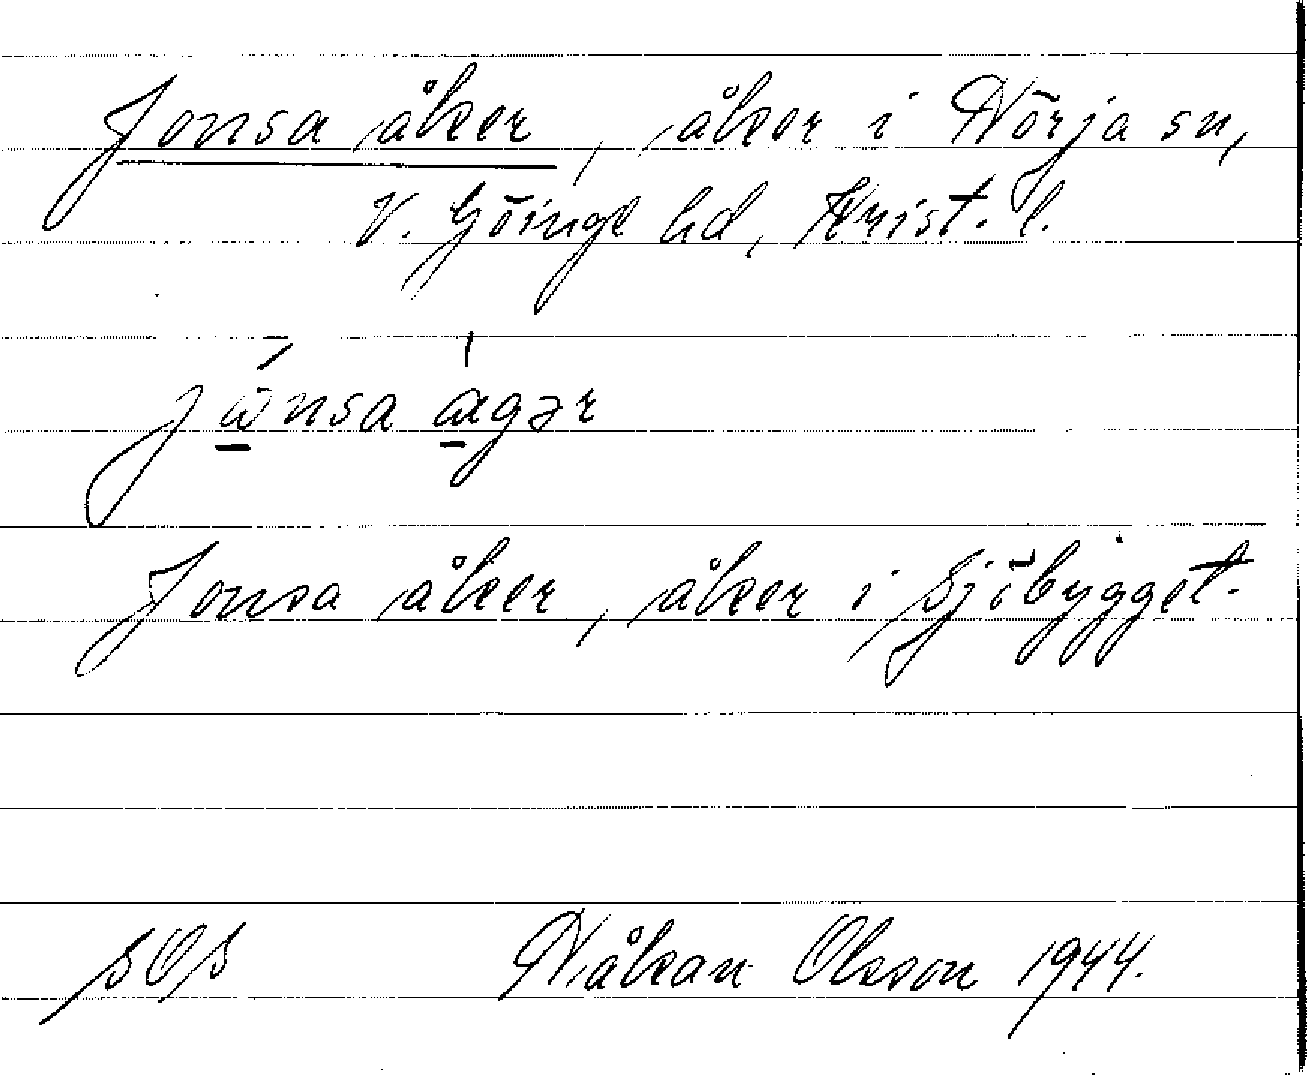 Jonsa åker, åker i Hörja sn,
V. Göinge hd, Krist. l.
jω̊nsa ɑgər
Jonsa åker, åker i Sjöbygget.
SOS Håkan Olsson 1944.